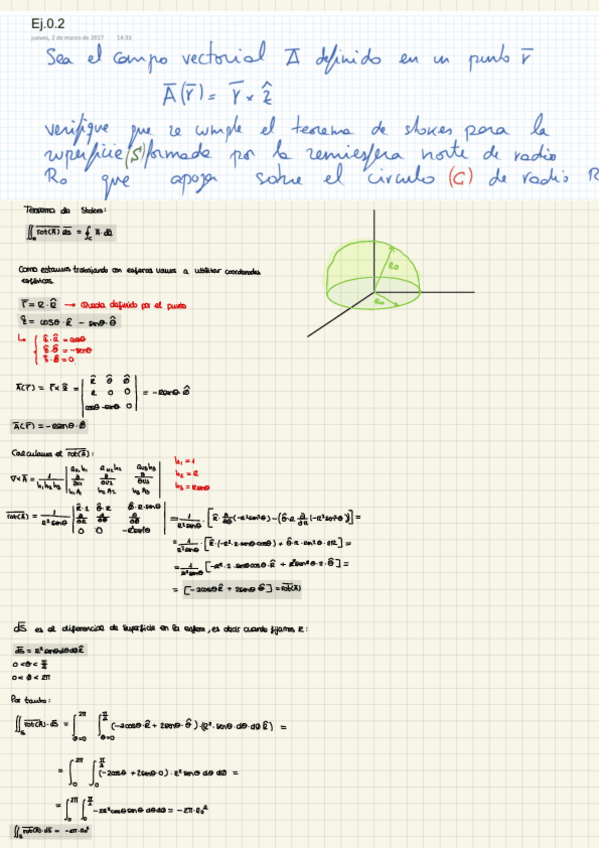 Ej.0.2
jueves, 2 de marzo de 2017 14:33
Sea el campo vectorial A̅ definido en un punto r̅
A̅(r̅) = r̅ × ẑ
verifique que se cumple el teorema de stokes para la
superficie (S) formada por la semiesfera norte de radio
R₀ que apoya sobre el circulo (C) de radio R
Teorema de Stokes:
∬ₛ rot(A̅) d̅s̅ = ∮c A̅·dl̅
Como estamos trabajando con esferas vamos a utilizar coordenadas
esféricas.
r̅ = R·R̂ → Queda definido por el punto
ẑ = cosθ·R̂ − senθ·θ̂
ẑ·R̂ = cosθ
ẑ·θ̂ = −senθ
ẑ·ϕ̂ = 0
R₀
R₀
A̅(r̅) = r̅×ẑ = | R̂ θ̂ ϕ̂ |
| R 0 0 | = −Rsenθ·ϕ̂
| cosθ −senθ 0 |
A̅(r̅) = −Rsenθ·ϕ̂
Calculamos el rot(A̅):
h₁ = 1
h₂ = R
h₃ = Rsenθ
∇×A̅ = 1/(h₁h₂h₃)
rot(A̅) = 1/(R²senθ) | R̂·1 θ̂·R ϕ̂·R·senθ |
| ∂/∂R ∂/∂θ ∂/∂ϕ |
| 0 0 −R²sen²θ |
= 1/(R²senθ)·[R̂·∂/∂θ(−R²sen²θ) − (θ̂·R·∂/∂R(−R²sen²θ))] =
= 1/(R²senθ)·[R̂·(−R²·2·senθcosθ) + θ̂·R·sen²θ·2R] =
= 1/(R²senθ)[−R²·2·senθcosθ·R̂ + R²sen²θ·2·θ̂] =
= [−2cosθR̂ + 2senθ θ̂] = rot(A̅)
d̅s̅ es el diferencial de superficie en la esfera, es decir cuando fijamos R:
d̅s̅ = R²senθdθdϕR̂
0 < θ < π/2
0 < ϕ < 2π
Por tanto:
∬ₛ rot(A̅)·d̅s̅ = ∫_{ϕ=0}^{2π} ∫_{θ=0}^{π/2} (−2cosθ·R̂ + 2senθ·θ̂)·(R²·senθ·dθ·dϕ R̂) =
= ∫₀^{2π} ∫₀^{π/2} (−2cosθ + 2senθ·0)·R²senθ dθ dϕ =
= ∫₀^{2π} ∫₀^{π/2} −2R²cosθsenθ dθdϕ = −2π·R₀²
∬ₛ rot(A̅)·d̅s̅ = −2π·R₀²